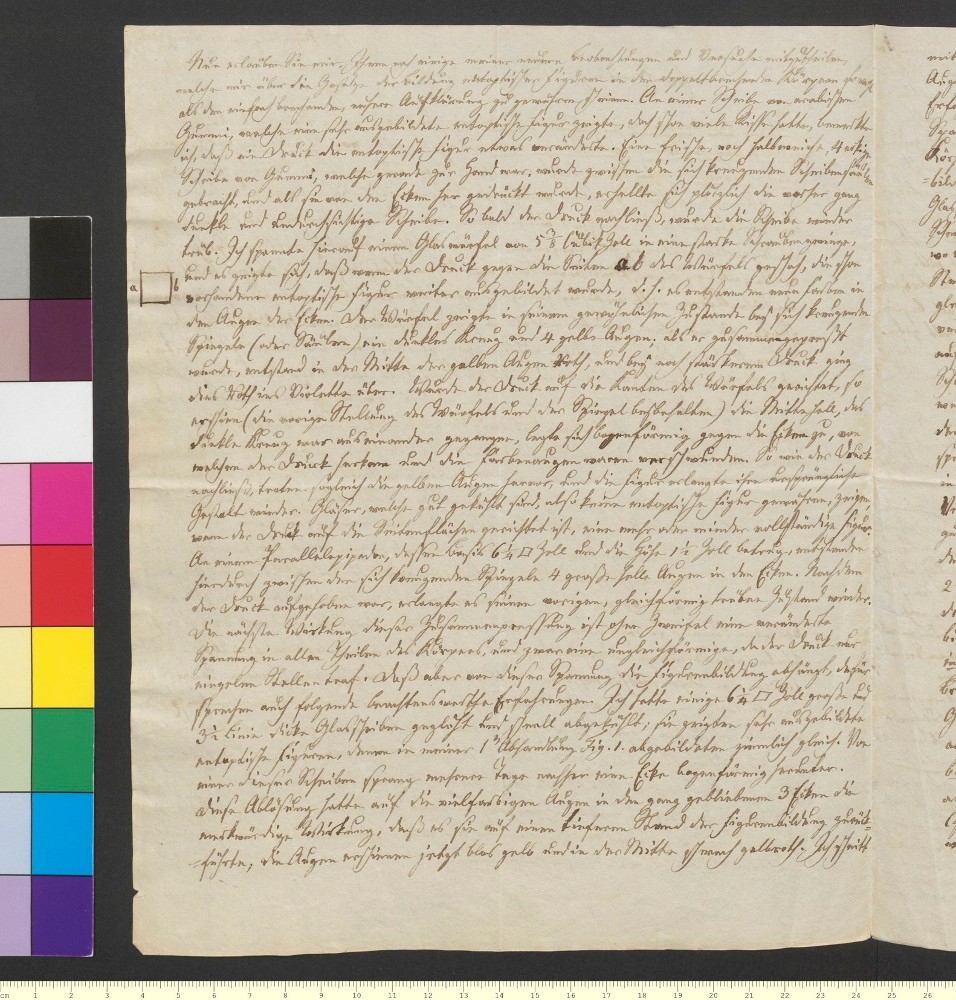 Nun erlauben Sie mir, Ihnen noch einige meiner neuern Beobachtungen und Versuche mitzutheilen,
welche mir über die Gesetze der Bildung entoptischer Figuren in den doppeltbrechenden Körpern
als den einfach brechenden, nähere Aufklärung zu gewähren scheinen. An einer Scheibe von arabischem
Gummi, welche eine sehr ausgebildete entoptische Figur zeigte, doch schon viele Risse hatte, bemerkte
ich, daß ein Druck die entoptische Figur etwas veränderte. Eine frische, noch halbweiche, 4 eckige
Scheibe von Gummi, welche gerade zur Hand war, wurde zwischen die sich kreuzenden Scheibensäulen
gebracht, und als sie von den Ecken her gedrückt wurde, erhellte sich plötzlich die vorher ganz
dunkle und undurchsichtige Scheibe. So bald der Druck nachließ, wurde die Scheibe wieder
trüb. Ich spannte hierauf einen Glaswürfel von 5 3/8 Cubik Zoll in eine starke Schraubenzwinge,
und es zeigte sich, daß wenn der Druck gegen die Seiten ab des Würfels geschah, die schon
a b vorhandene entoptische Figur weiter ausgebildet wurde, d. h. es entstanden neue Farben in
den Augen der Ecken. Der Würfel zeigte in seinem gewöhnlichen Zustande bey sich kreuzenden
Spiegeln (oder Säulen) ein dunkles Kreuz und 4 gelbe Augen; als er zusammengepreßt
wurde, entstand in der Mitte der gelben Augen Roth, und bey noch stärkerem Druck ging
dies Roth ins Violette über. Wurde der Druck auf die Kanten des Würfels gerichtet, so
erschien (die vorige Stellung des Würfels und der Spiegel beybehalten) die Mitte hell, das
dunkle Kreuz war auseinander gegangen, legte sich bogenförmig gegen die Ecken zu, von
welchen der Druck herkam und die Farbenaugen waren verschwunden. So wie der Druck
nachließ, traten sogleich die gelben Augen hervor, und die Figur erlangte ihre ursprüngliche
Gestalt wieder. Gläser, welche gut gekühlt sind, also keine entoptische Figur gewähren, zeigen,
wenn der Druck auf die Seitenflächen gerichtet ist, eine mehr oder minder vollständige Figur.
An einem Parallelepipedon, dessen Basis 6 1/4 □ Zoll und die Höhe 1 1/2 Zoll betrug, entstanden
hierdurch zwischen den sich kreuzenden Spiegeln 4 große helle Augen in den Ecken. Nachdem
der Druck aufgehoben war, erlangte es seinen vorigen, gleichförmig trüben Zustand wieder.
Die nächste Wirkung dieser Zusammenpressung ist ohne Zweifel eine veränderte
Spannung in allen Theilen des Körpers, und zwar eine ungleichförmige, da der Druck nur
einzelne Stellen traf. Daß aber von dieser Spannung die Figurenbildung abhängt, dafür
sprechen auch folgende beachtenswerthe Erfahrungen. Ich hatte einige 6 1/4 □ Zoll große und
3 1/2 Linie dicke Glasscheiben geglüht und schnell abgekühlt; sie zeigten sehr ausgebildete
entoptische Figuren, denen in meiner 1n Abhandlung Fig. 1. abgebildeten ziemlich gleich. Von
einer dieser Scheiben sprang mehrere Tage nachher eine Ecke bogenförmig herunter.
Diese Ablösung hatte auf die vielfarbigen Augen in den ganz gebliebenen 3 Ecken die
merkwürdige Wirkung, daß es sie auf einen tieferen Stand der Figurenbildung zurück=
=führte; die Augen erschienen jetzt blos gelb und in der Mitte schwach gelbroth. Ich schnitt